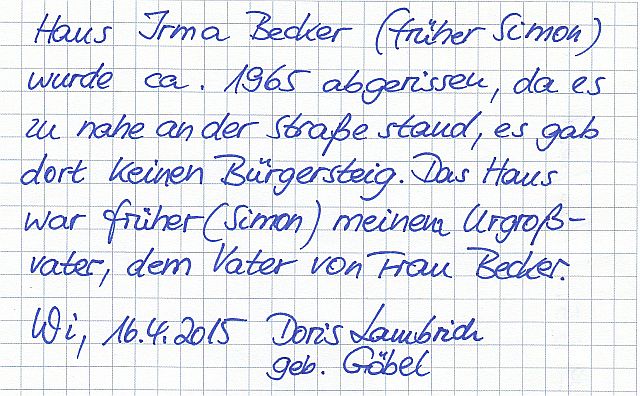 Haus Irma Becker (früher Simon)
wurde ca. 1965 abgerissen, da es
zu nahe an der Straße stand, es gab
dort keinen Bürgersteig. Das Haus
war früher (Simon) meinem Urgroß-
vater, dem Vater von Frau Becker.
Wi, 16.4.2015 Doris Lambrich
geb. Göbel